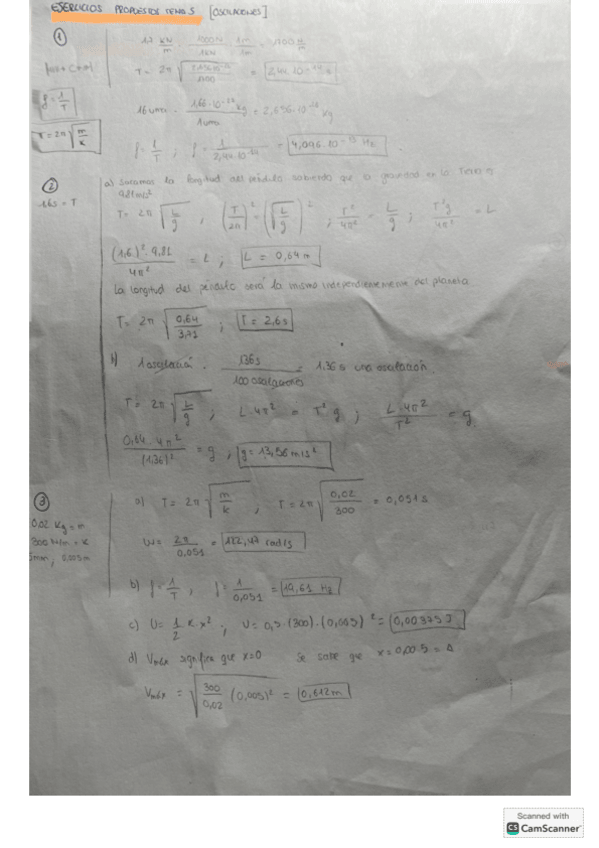 EJERCICIOS PROPUESTOS TEMA 5 [OSCILACIONES]
①
f = 1/T
T = 2π √(m/k)
f = 1/T ; f =
②
1,6s = T
a) Sacamos la longitud del péndulo sabiendo que la gravedad en la Tierra es
9,81 m/s²
T = 2π √(L/g) , (T/2π)² = (√(L/g))² ; T²/4π² = L/g ; T²g/4π² = L
(1,6)² · 9,81 / 4π² = L ; L = 0,64 m
La longitud del péndulo será la misma independientemente del planeta
T = 2π √(0,64/3,71) ; T = 2,6 s
b) 1 oscilación · 136s / 100 oscilaciones = 1,36 s una oscilación.
T = 2π √(L/g) ; L · 4π² = T² g ; L · 4π² / T² = g
0,64 · 4π² / (1,36)² = g , g = 13,56 m/s²
③
0,02 kg = m
300 N/m = K
5mm ; 0,005 m
a) T = 2π √(m/k) ; T = 2π √(0,02/300) = 0,051 s
ω = 2π / 0,051 = 122,47 rad/s
b) f = 1/T , f = 1/0,051 = 19,61 Hz
c) U = 1/2 k x² ; U = 0,5 · (300) · (0,005)² = 0,00375 J
d) Vmáx significa que x=0 Se sabe que x = 0,005 = A
Vmáx = √(300/0,02 (0,005)²) = 0,612 m
Scanned with
CS CamScanner